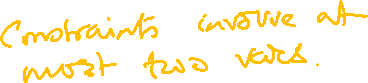 Constraints involve at
most two vars.